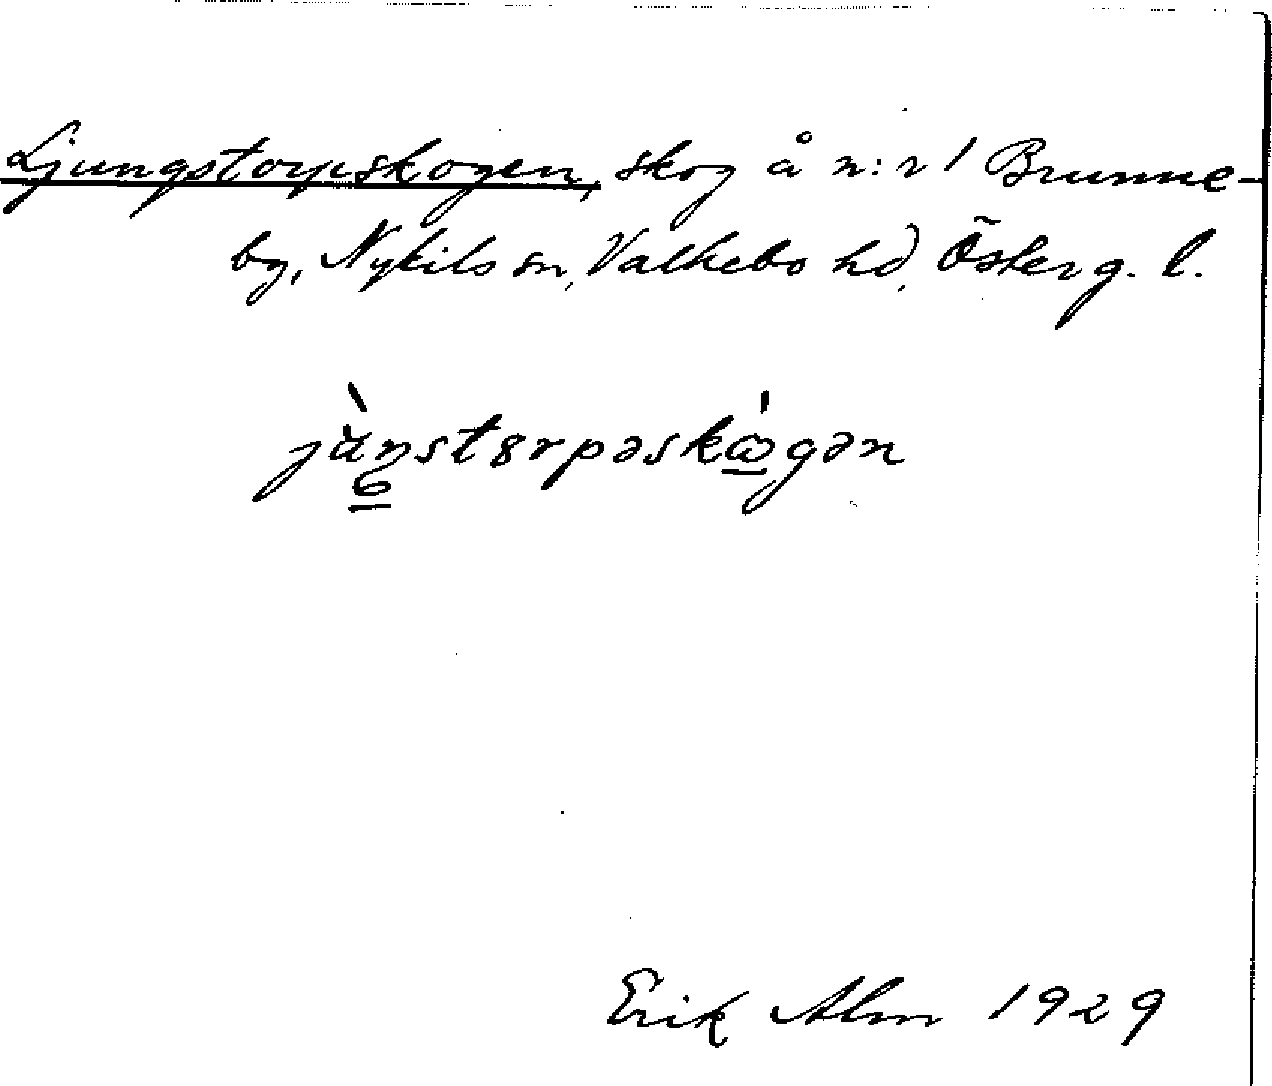 Ljungstorpskogen, skog å n:r 1 Brunne-
by, Nykils sn, Valkebo hd, Österg. l.
Erik Alm 1929